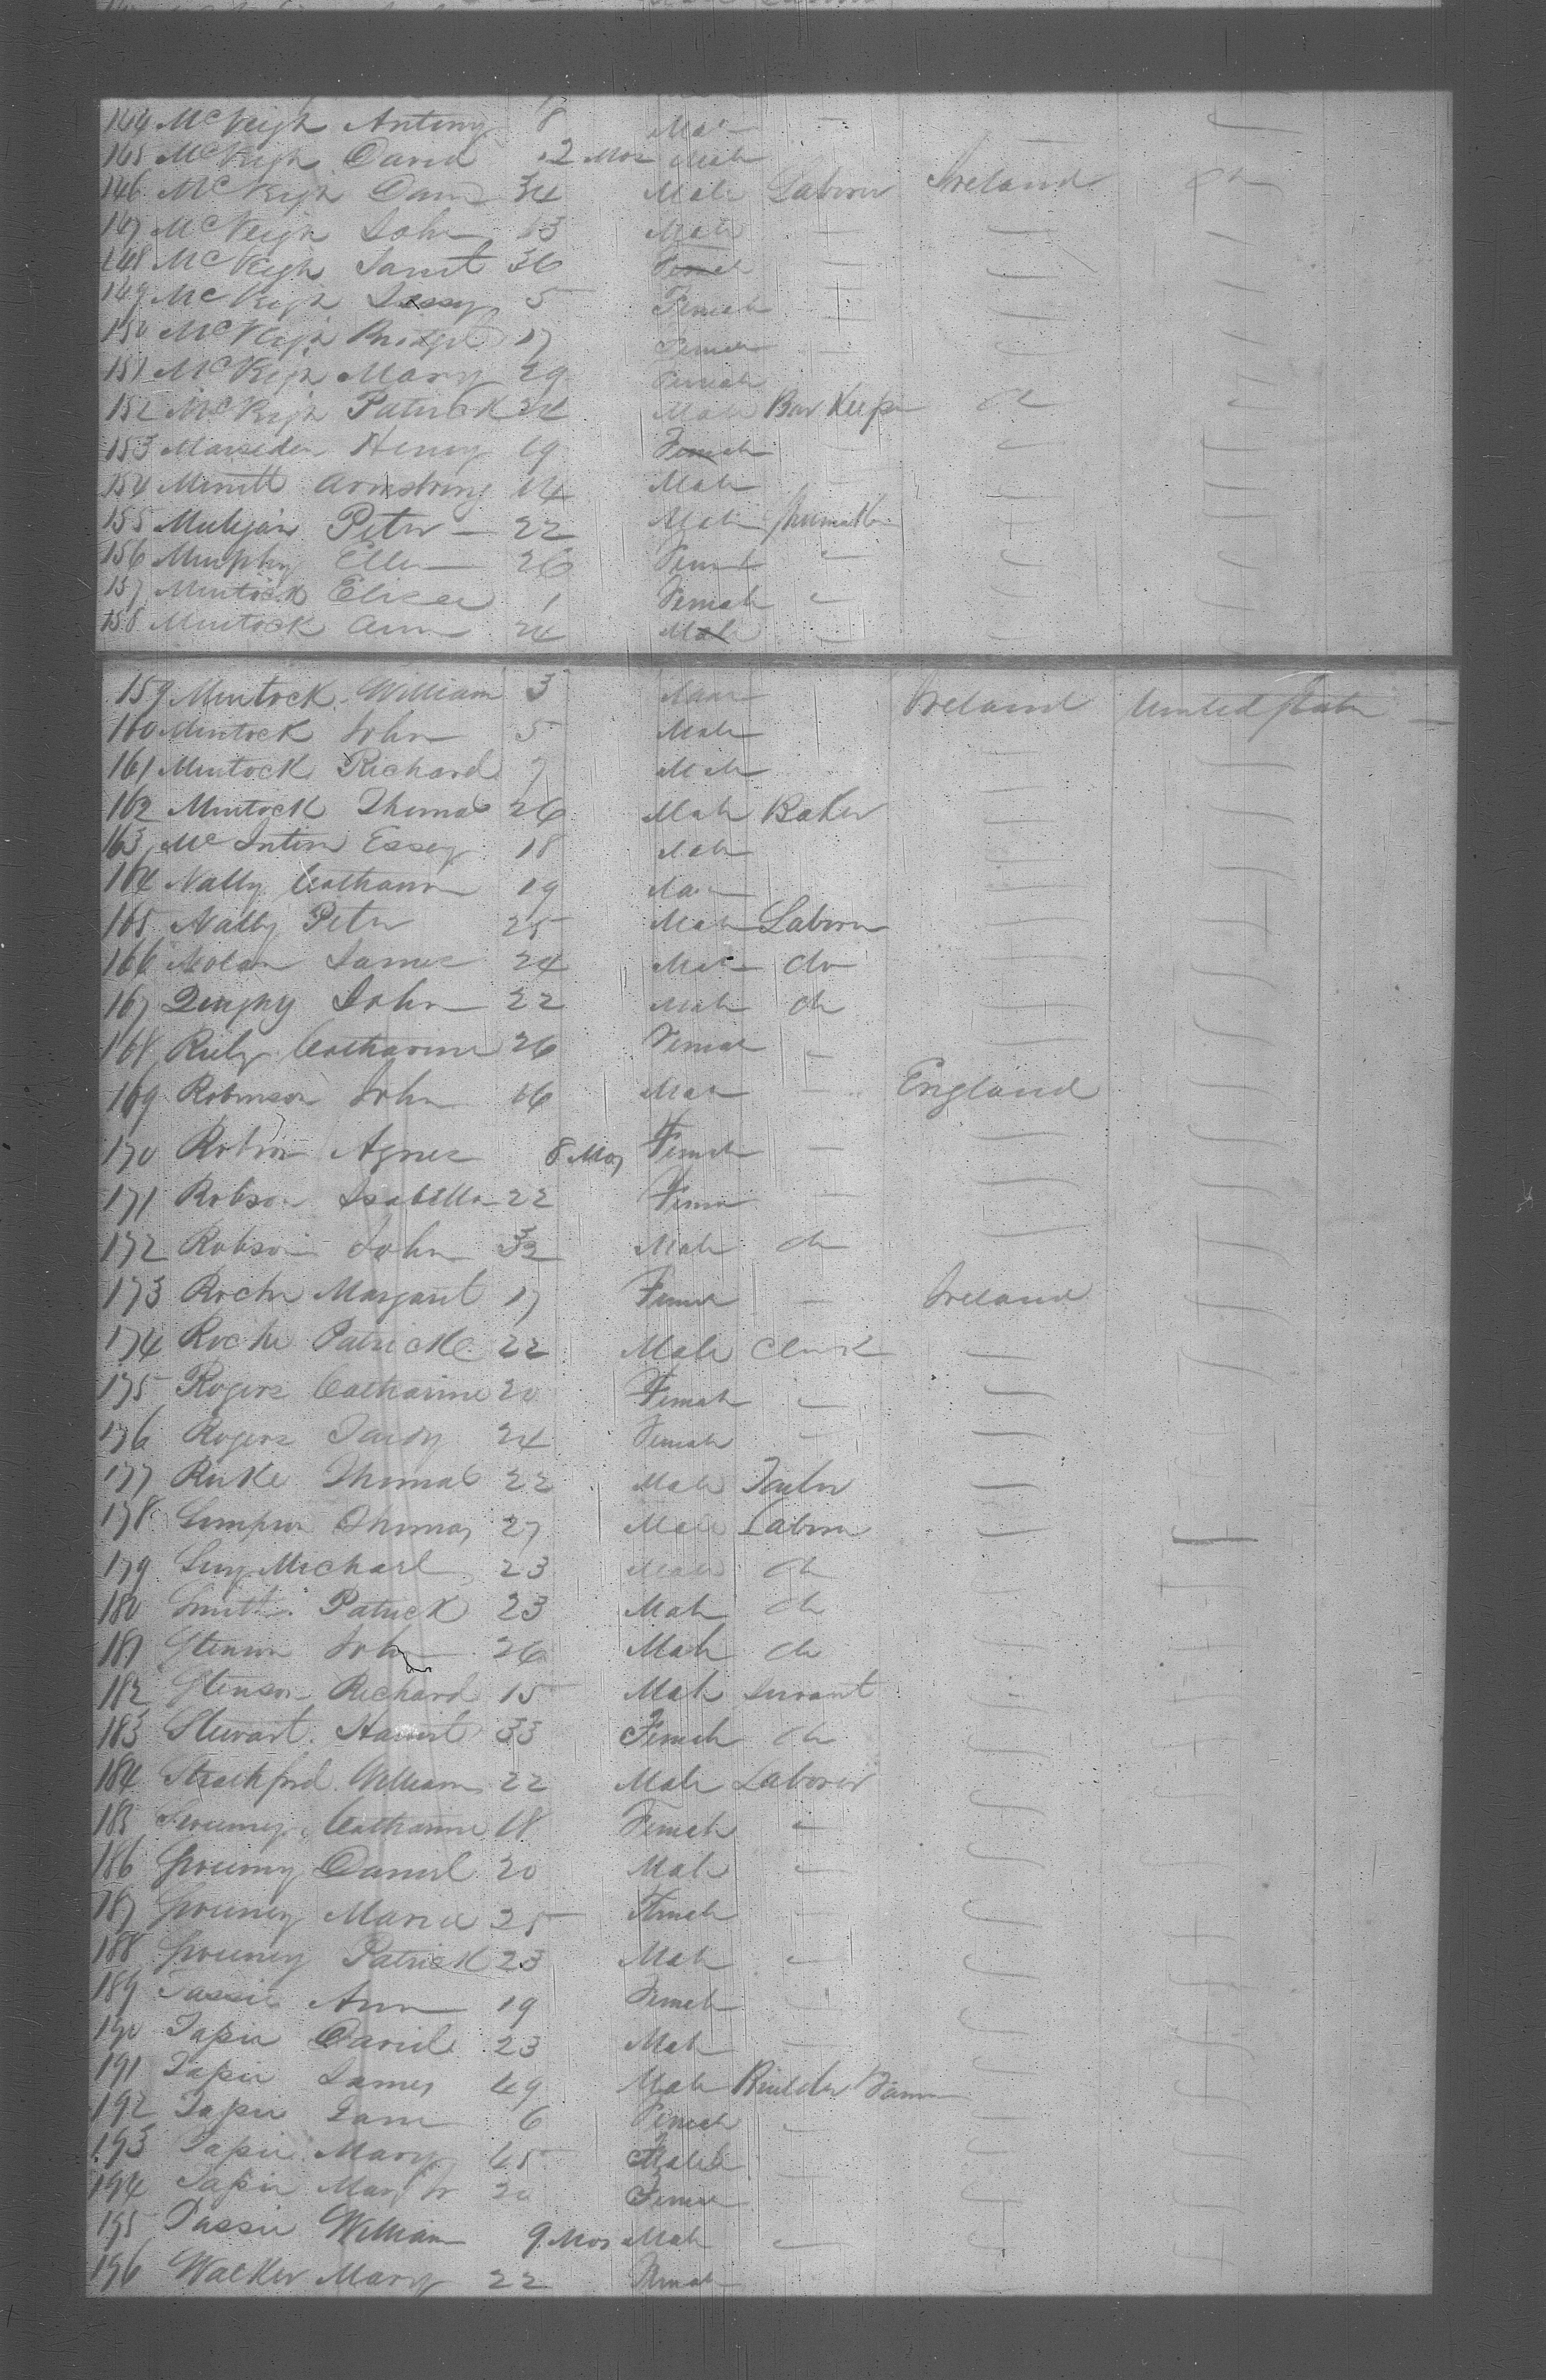 144 McVeigh Antony 8 Mal —
145 McVeigh David 2 Mos Male
146 McVeigh Dan 34 Male Laborer Ireland do
147 McVeigh John 13 Male —
148 McVeigh Janet 36 Femal —
149 McVeigh Jessy 5 Female —
150 McVeigh Bridget 17 Female —
151 McVeigh Mary 29 Female
152 McVeigh Patrick 24 Male Bar Keeper do
153 Marsden Henry 19 Female
154 Minitt Armstrong 14 Male
155 Muligan Peter — 22 Male
156 Murphy Ellen — 26 Femal —
157 Mintock Eliza 1 Female —
158 Mintock Ann 24 Male —
159 Mintock William 3 Male Ireland United State —
160 Mintock John 5 Male
161 Mintock Richard 7 Male
162 Mintock Thomas 26 Male Baker
163 McIntire Essey 18 Male
164 Nally Catharine 19 Male
165 Nally Peter 25 Male Laborer
166 Nolan James 24 Male do
167 John 22 Male do
168 Riely Catharine 26 Female —
169 Robinson John 16 Male — England
170 Robson Agnes 8 Mos Female —
171 Robson Isabella 22 Female —
172 Robson John 32 Male do
173 Roche Margaret 17 Female — Ireland
174 Roche Patrick 22 Male Clerk
175 Rogers Catharine 20 Female —
176 Rogers 24 Female —
177 Thomas 22 Male Tailor
178 Simpson Thomas 27 Male Laborer
179 Michael 23 Male do
180 Smith Patrick 23 Male do
181 Stenson John 26 Male do
182 Stenson Richard 15 Male Servant
183 Stewart Harriet 33 Female do
184 William 22 Male Laborer
185 Sweeney Catharine 18 Female —
186 Sweeney Daniel 20 Male —
187 Sweeney Maria 25 Female —
188 Sweeney Patrick 23 Male —
189 Tassie Ann 19 Female —
190 Tassie David 23 Male —
191 Tassie James 49 Male Builder
192 Tassie Jane 6 Female —
193 Tassie Mary 45
194 Tassie Mary Jr 20 Female —
195 Tassie William 9 Mos Male —
196 Walker Mary 22 Female